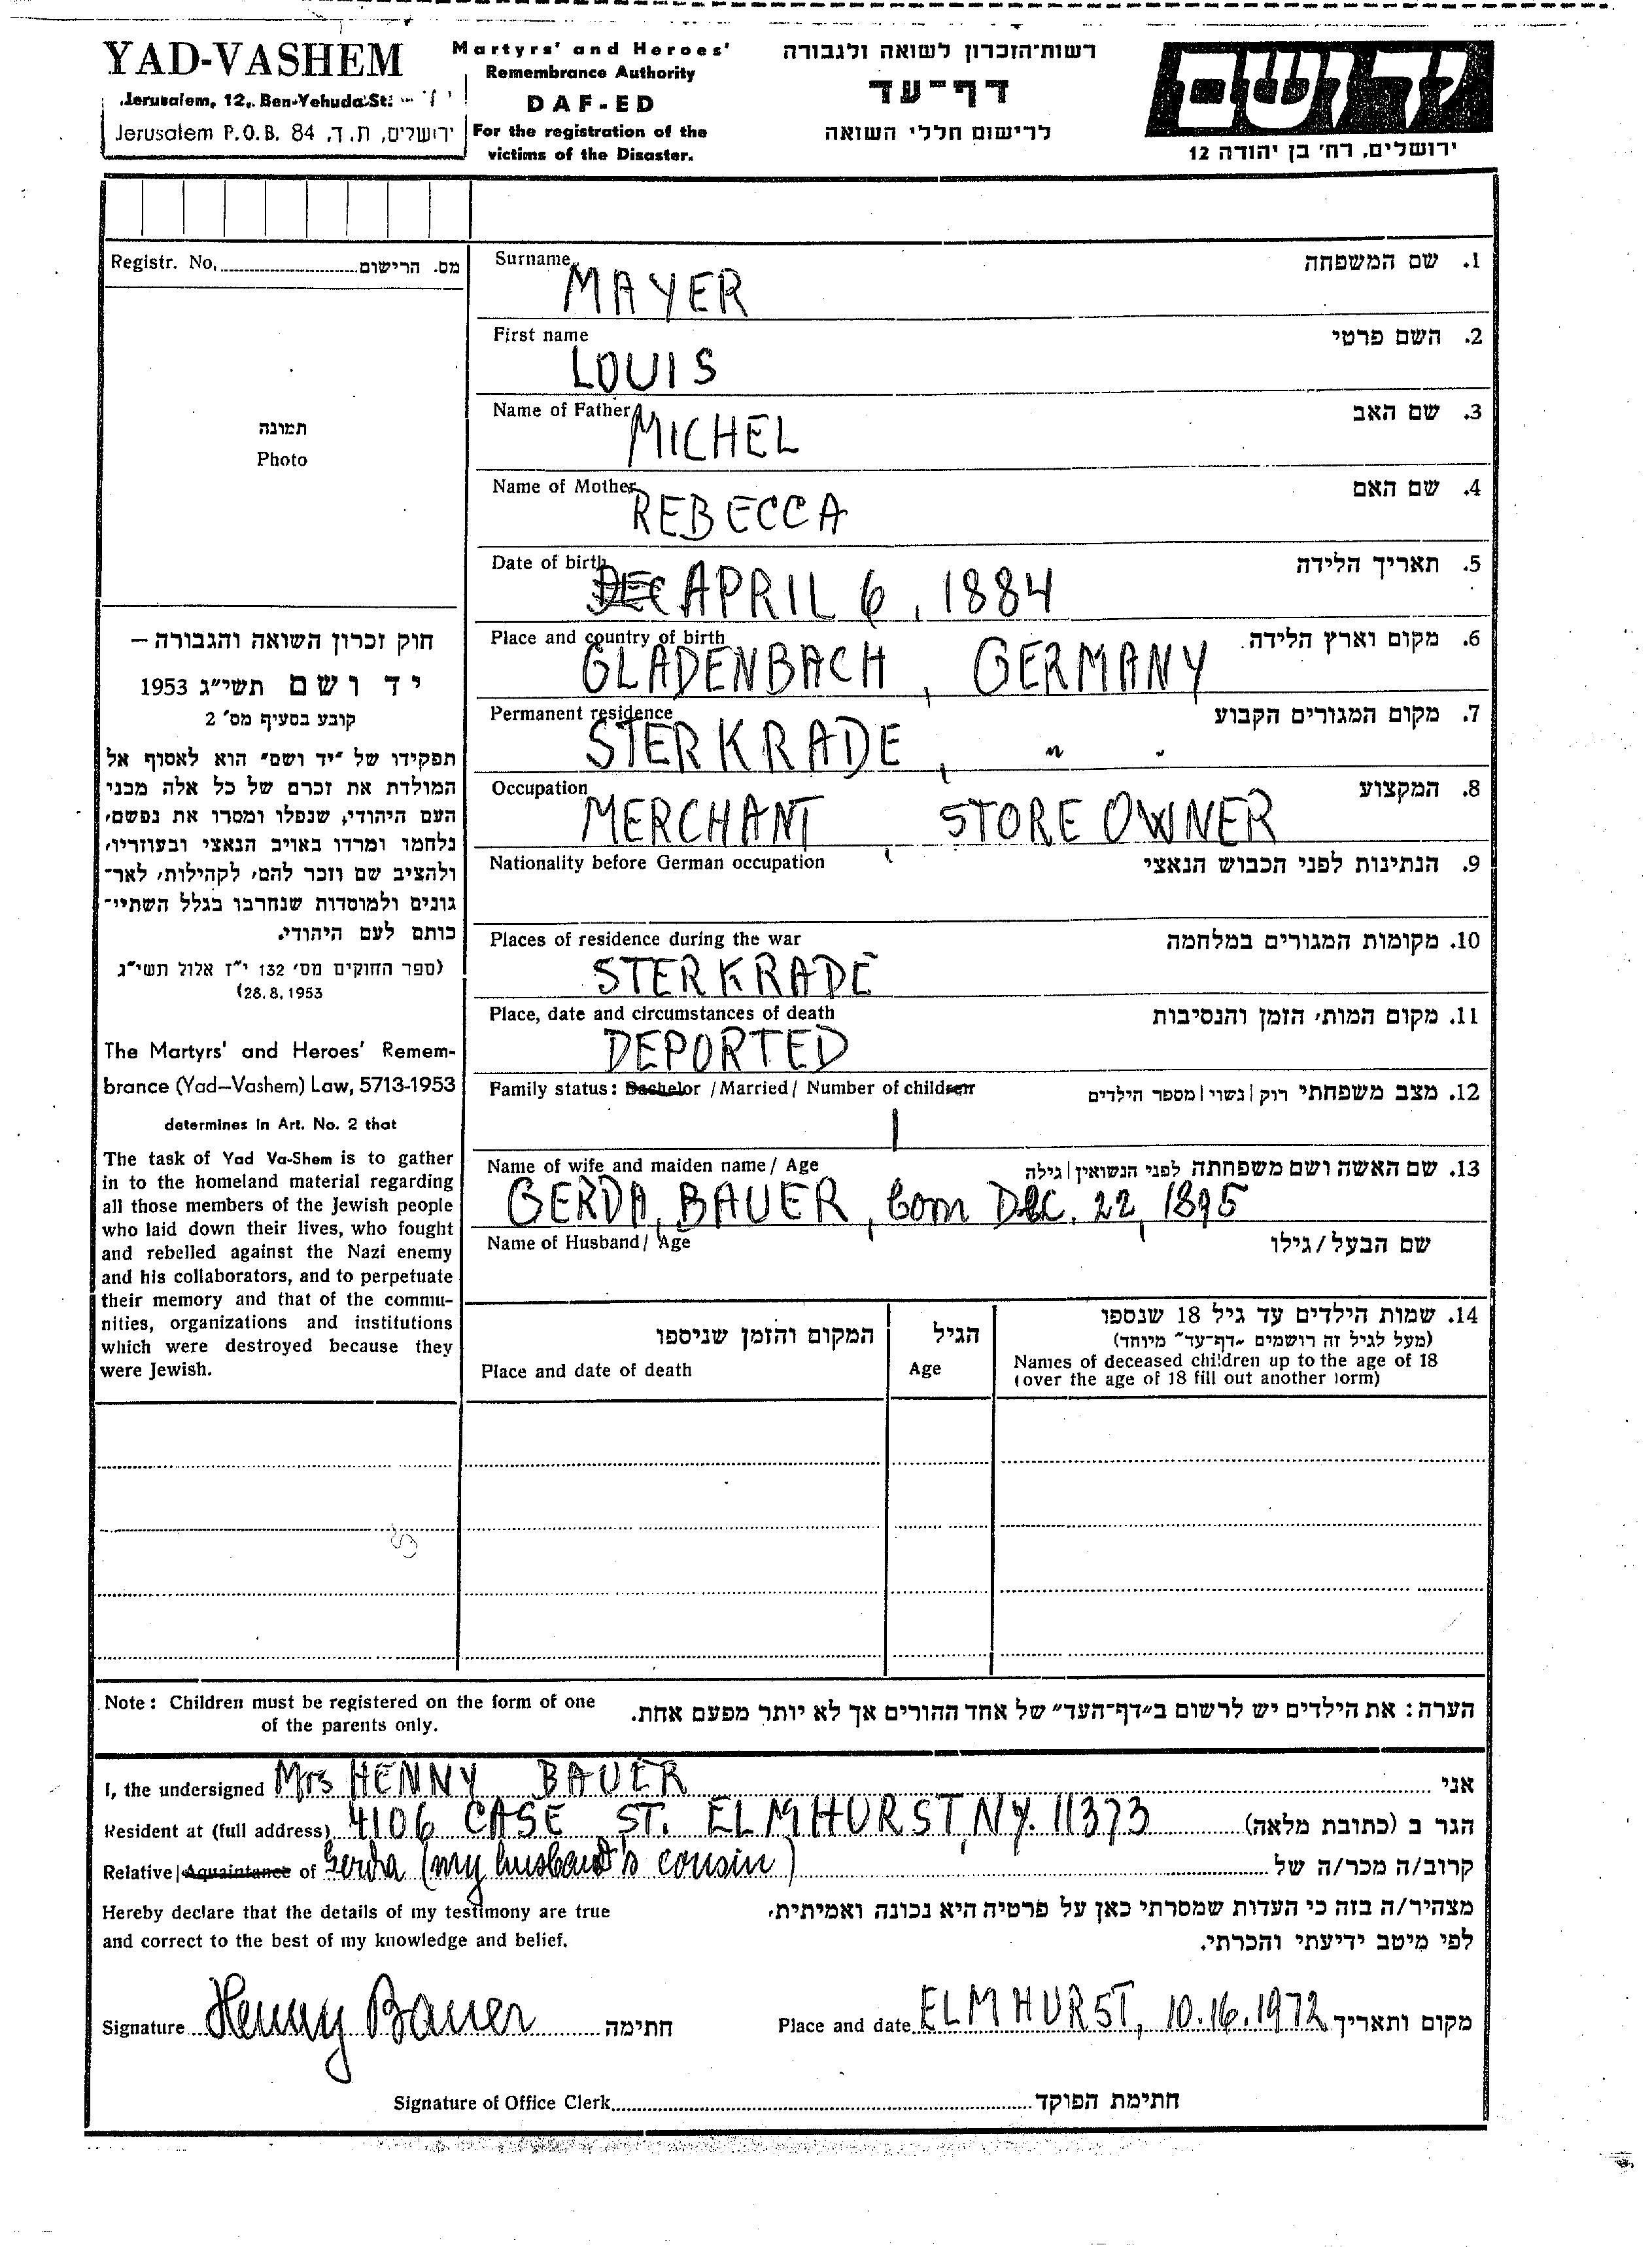 YAD-VASHEM
Jerusalem, 12, Ben-Yehuda St.
Jerusalem P.O.B. 84 ירושלים, ת. ד.
Martyrs' and Heroes'
Remembrance Authority
DAF-ED
For the registration of the
victims of the Disaster.
רשות־הזכרון לשואה ולגבורה
דף־עד
לרישום חללי השואה
ידושם
ירושלים, רח׳ בן יהודה 12
Registr. No. מס. הרישום
תמונה
Photo
חוק זכרון השואה והגבורה –
יד ושם תשי״ג 1953
קובע בסעיף מס׳ 2
תפקידו של ״יד ושם״ הוא לאסוף אל
המולדת את זכרם של כל אלה מבני
העם היהודי, שנפלו ומסרו את נפשם,
נלחמו ומרדו באויב הנאצי ובעוזריו,
ולהציב שם וזכר להם, לקהילות, לאר־
גונים ולמוסדות שנחרבו בגלל השתיי־
כותם לעם היהודי.
(ספר החוקים מס׳ 132 י״ז אלול תשי״ג
(28.8.1953
The Martyrs' and Heroes' Remem-
brance (Yad–Vashem) Law, 5713-1953
determines in Art. No. 2 that
The task of Yad Va-Shem is to gather
in to the homeland material regarding
all those members of the Jewish people
who laid down their lives, who fought
and rebelled against the Nazi enemy
and his collaborators, and to perpetuate
their memory and that of the commu-
nities, organizations and institutions
which were destroyed because they
were Jewish.
Surname 1. שם המשפחה
MAYER
First name 2. השם פרטי
LOUIS
Name of Father 3. שם האב
MICHEL
Name of Mother 4. שם האם
REBECCA
Date of birth 5. תאריך הלידה
DEC APRIL 6, 1884
Place and country of birth 6. מקום וארץ הלידה.
GLADENBACH, GERMANY
Permanent residence 7. מקום המגורים הקבוע
STERKRADE, "
Occupation 8. המקצוע
MERCHANT, STORE OWNER
Nationality before German occupation 9. הנתינות לפני הכבוש הנאצי
Places of residence during the war 10. מקומות המגורים במלחמה
STERKRADE
Place, date and circumstances of death 11. מקום המות, הזמן והנסיבות
DEPORTED
Family status: Bachelor /Married/ Number of children 12. מצב משפחתי רוק|נשוי|מספר הילדים
1
Name of wife and maiden name/ Age 13. שם האשה ושם משפחתה לפני הנשואין|גילה
GERDA, BAUER, born DEC. 22, 1895
Name of Husband/ Age שם הבעל/גילו
14. שמות הילדים עד גיל 18 שנספו
(מעל לגיל זה רושמים ״דף־עד״ מיוחד)
Names of deceased children up to the age of 18
(over the age of 18 fill out another form)
הגיל
Age
המקום והזמן שניספו
Place and date of death
Note: Children must be registered on the form of one
of the parents only.
הערה: את הילדים יש לרשום ב״דף־העד״ של אחד ההורים אך לא יותר מפעם אחת.
I, the undersigned Mrs HENNY BAUER אני
Resident at (full address) 4106 CASE ST. ELMHURST, NY. 11373 הגר ב (כתובת מלאה)
Relative|Aquaintance of Gerda (my husband's cousin) קרוב/ה מכר/ה של
Hereby declare that the details of my testimony are true
and correct to the best of my knowledge and belief.
מצהיר/ה בזה כי העדות שמסרתי כאן על פרטיה היא נכונה ואמיתית,
לפי מיטב ידיעתי והכרתי.
Signature Henny Bauer חתימה
Place and date ELMHURST, 10.16.1972 מקום ותאריך
Signature of Office Clerk חתימת הפוקד